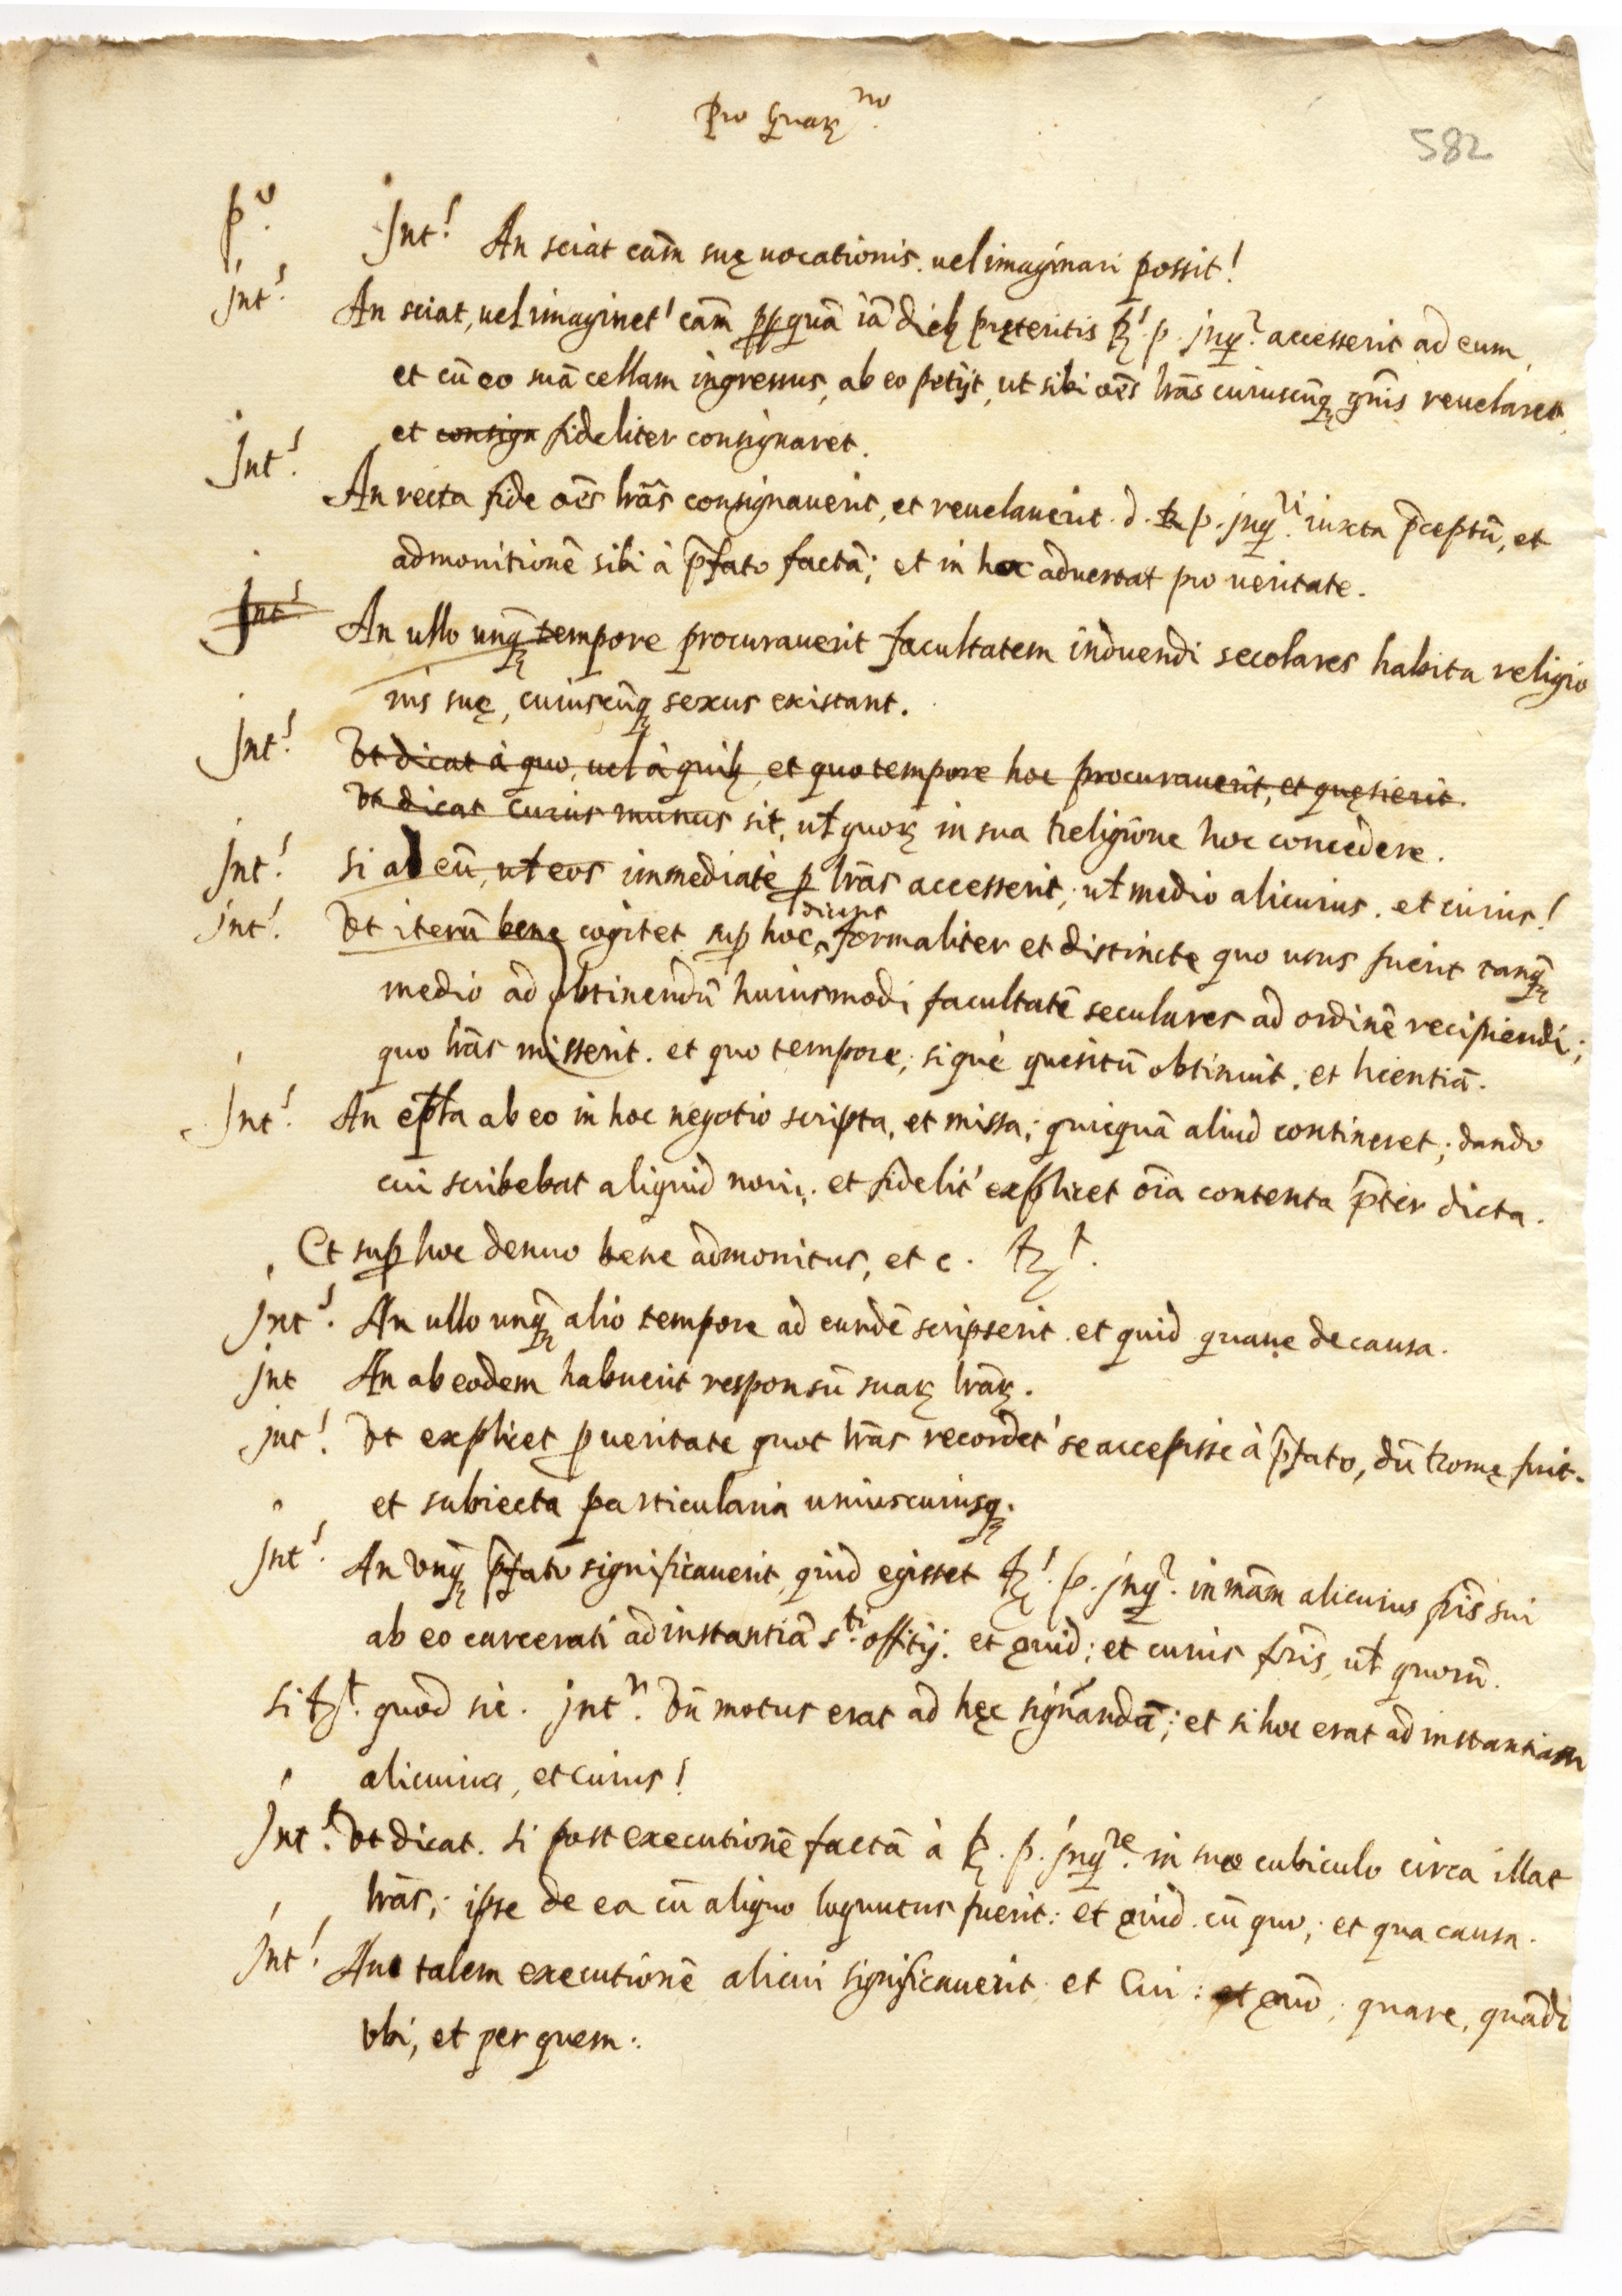 Pro Guar.no
582
p.o Int.s An sciat cām suę uocationis. uel imaginari possit!
Int.s An sciat, uel imaginet' cām ꝓp quā iā dieb; pręteritis R. p. jnq.r accesserit ad eum,
et cū eo suā cellam ingressus, ab eo petijt, ut sibi oēs lrās cuiuscūq; gn̄is reuelaret
et consign fideliter consignaret.
Int.s An recta fide oēs lrās consignauerit, et reuelauerit. d. R. p. jnq.ri iuxta p̄ceptū, et
admonitionē sibi à p̄fato factā; et in hoc aduertat pro ueritate.
Int.s An ullo unq̄ tempore procurauerit facultatem induendi secolares habita religio
nis suę, cuiuscūq; sexus existant.
Int.s Vt dicat à quo, uel à quib; et quo tempore hoc procurauerit, et quęsierit.
Vt dicat cuius munus sit, uł quoꝝ in sua Religiōne hoc concedere.
Int.s Si ad eū, uł eos immediatè ꝑ lrās accesserit; uł medio alicuius. et cuius!
Int.s Vt iterū bene cogitet suꝑ hoc, formaliter et distincte quo usus fuerit tanq̄
medio ad obtinendū huiusmodi facultatē seculares ad ordinē recipiendi;
quo lrās misserit. et quo tempore; siquè quesitū obtinuit, et licentiā.
Int.s An epła ab eo in hoc negotio scripta, et missa; quicquā aliud contineret; dando
cui scribebat aliquid noui; et fidelit' explicet oīa contenta p̄ter dicta.
Et suꝑ hoc denuo bene admonitus, et c. R.t
Int.s An ullo unq̄ alio tempore ad eundē scripserit. et quid quaue de causa.
Int An ab eodem habuerit responsū suaꝝ lrāꝝ.
Int.s Vt explicet ꝑ ueritate quot lrās recordet' se accepisse à p̄fato, dū Romę fuit.
et subiecta particularia uniuscuiusq;.
Int.s An unq̄ p̄fato significauerit, quid egisset R. p. jnq.r in mām alicuius fr̄is sui
ab eo carcerati ad instantiā s.ti offitij. et quid; et cuius fr̄is, uł quorū.
Si R.t quod sic. Int.n Vn̄ motus erat ad hęc signandā; et si hoc erat ad instantiam
alicuius, et cuius!
Int.s Vt dicat. si post executionē factā à R. p. jnq.re in suo cubiculo circa illas
lrās; ipse de ea cū aliquo loquutus fuerit: et quid. cū quo; et qua causa.
Int.s An talem executionē alicui significauerit et Cui: et quō; quare, quādo
Vbi, et per quem: